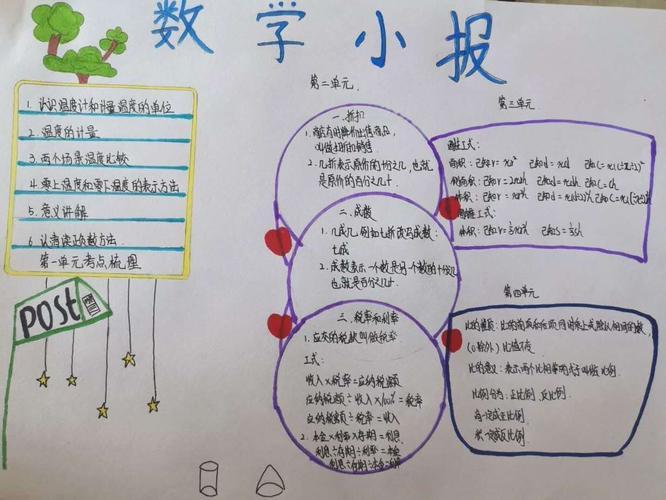 数学小报
1. 认识温度计和计量温度的单位
2. 温度的计量
3. 两个场景温度比较
4. 零上温度和零下温度的表示方法
5. 意义讲解
6. 认清读正负数方法
第一单元考点梳理
POSt
第二单元
一. 折扣
1. 商店有时降价出售商品,
叫做打折扣销售
2. 几折表示原价的十分之几, 也就
是原价的百分之几十.
二. 成数
1. 几成几, 例如七折改写成数:
七成
2. 成数表示一个数是另一个数的十分之几
也就是百分之几十
三. 税率和利率
1. 应交的税款叫做税率
公式:
收入×税率=应纳税额
应纳税额÷收入×100%=税率
应纳税额÷税率=收入
2. 本金×利率×存期=利息
利息÷存期÷利率=本金
利息÷存期÷本金=利率
第三单元
圆柱公式:
面积: 已知r: πr² 已知d=πd
侧面积: 已知r=2πrh 已知d=πdh 已知C=Ch
体积: 已知r=πr²h
圆锥公式:
体积: 已知r=⅓πr²h 已知S=⅓Sh
第四单元
比的性质: 比的前项和后项同时乘上或除以相同的数,
(0除外) 比值不变
比的意: 表示两个比相等的式子叫做比例.
比例分为: 正比例, 反比例.
商一定成正比例
积一定成反比例.